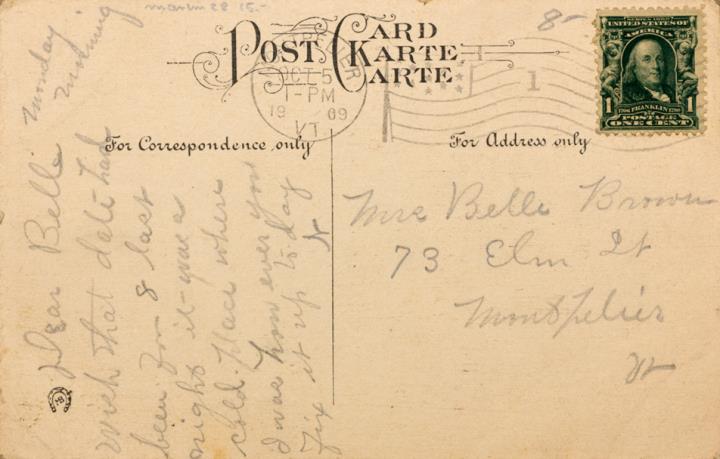 POST CARD
KARTE
CARTE
OCT 5
1-PM
19 09
VT
1
8-
SERIES 1902
UNITED STATES OF
AMERICA
1706 FRANKLIN 1790
1 1
POSTAGE
ONE CENT
For Correspondence only
For Address only
Monday
Morning
Dear Belle
Wish that date had
been for 8 last
night it was a
cold place where
I was however you
fix it up to day
Mrs Belle Brown
73 Elm St
Montpelier
Vt